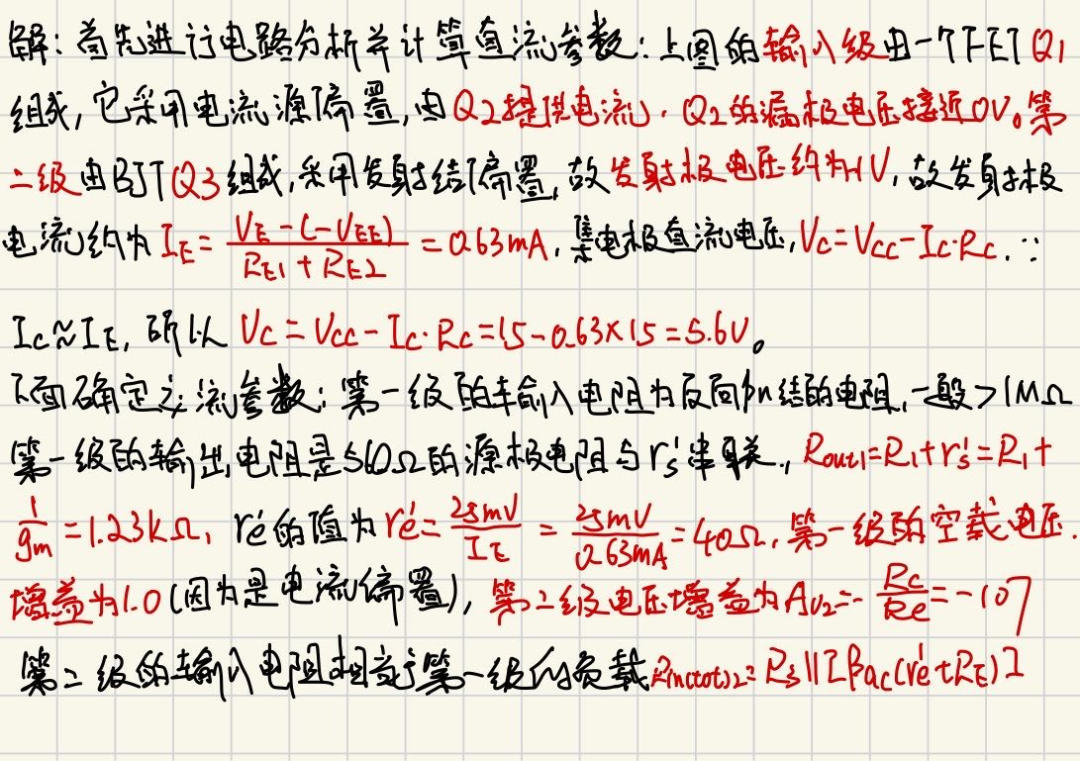 解:首先进行电路分析并计算直流参数:上图的输入级由一个FET Q1
组成,它采用电流源偏置,由Q2提供电流,Q2的漏极电压接近0V。第
二级由BJT Q3组成,采用发射结偏置,故发射极电压约为1V,故发射极
电流约为 IE = (VE-(-VEE))/(RE1+RE2) = 0.63mA,集电极直流电压,VC=VCC-IC·RC. ∵
IC≈IE, 所以 VC=VCC-IC·RC=15-0.63×15=5.6V。
下面确定交流参数:第一级的输入电阻为反向pn结的电阻,一般>1MΩ
第一级的输出电阻是560Ω的源极电阻与rs'串联., Rout1=R1+rs'=R1+
1/gm=1.23kΩ, re'的值为re'=25mV/IE=25mV/0.63mA=40Ω, 第一级的空载电压
增益为1.0(因为是电流偏置),第二级电压增益为AV2=-RC/Re=-107
第二级的输入电阻相当于第一级的负载Rin(tot)2=R3||[βac(re'+RE)]